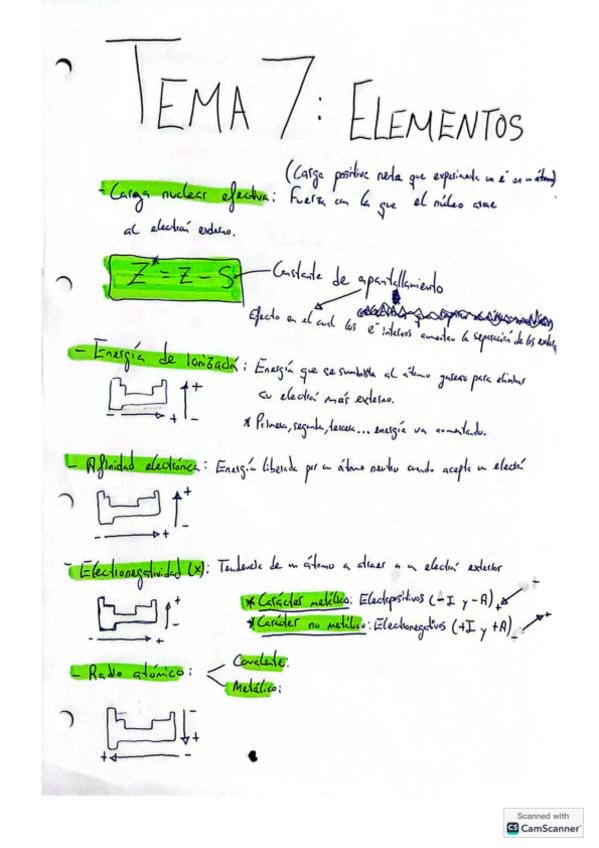 TEMA 7: ELEMENTOS
(Carga positiva neta que experimenta un é en un átomo)
- Carga nuclear efectiva: Fuerza con la que el núcleo atrae
al electrón externo.
Z* = Z - S
Constante de apantallamiento
Efecto en el cual los é internos aumentan la separación de los
- Energía de Ionización: Energía que se suministra al átomo gaseoso para eliminar
su electrón más externo.
* Primera, segunda, tercera... energía va aumentando.
- + + -
- Afinidad electrónica: Energía liberada por un átomo neutro cuando acepta un electrón
- + + -
- Electronegatividad (x): Tendencia de un átomo a atraer a un electrón exterior
* Carácter metálico: Electropositivos (-I y -A) + -
* Carácter no metálico: Electronegativos (+I y +A) - +
- + + -
- Radio atómico:
Covalente:
Metálico:
+ - - +
Scanned with
CS CamScanner